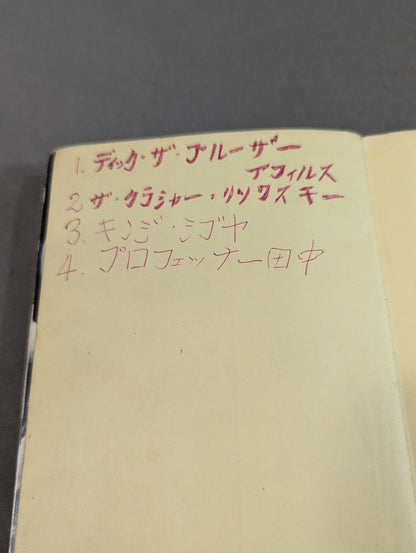 1. ディック・ザ・ブルーザー
アフィルス
2 ザ・クラシャー・リソワスキー
3. キンジ・シブヤ
4. プロフェッナー田中